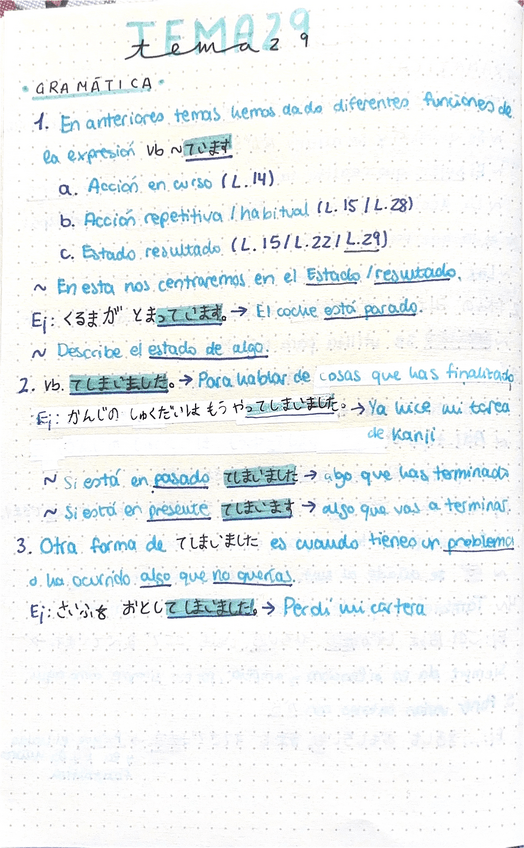 TEMA29
tema 29
• GRAMÁTICA •
1. En anteriores temas hemos dado diferentes funciones de
la expresión vb ~ ています
a. Acción en curso (L.14)
b. Acción repetitiva / habitual (L.15 / L.28)
c. Estado resultado (L.15/L.22/L.29)
~ En esta nos centraremos en el Estado/resultado.
Ej: くるまが とまっています。→ El coche está parado.
~ Describe el estado de algo.
2. vb. てしまいました。→ Para hablar de cosas que has finalizado
Ej: かんじの しゅくだいは もう やってしまいました。→ Ya hice mi tarea
de Kanji
~ Si está en pasado てしまいました → algo que has terminado
~ Si está en presente てしまいます → algo que vas a terminar.
3. Otra forma de てしまいました es cuando tienes un problema
o ha ocurrido algo que no querías.
Ej: さいふを おとしてしまいました。→ Perdí mi cartera